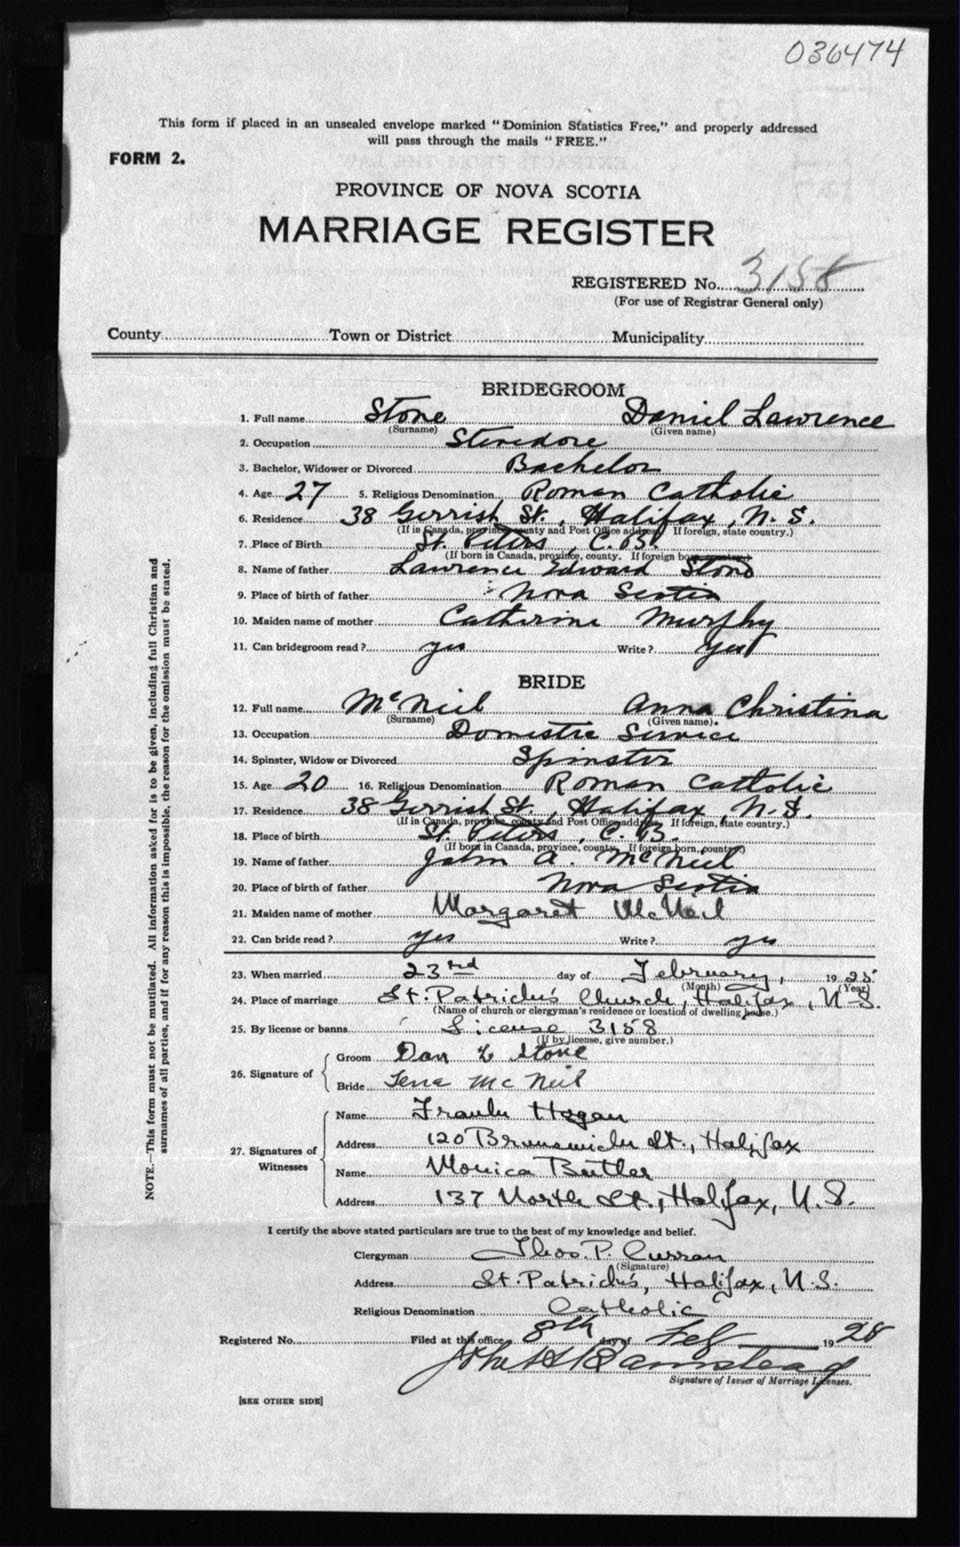 036474
This form if placed in an unsealed envelope marked "Dominion Statistics Free," and properly addressed
will pass through the mails "FREE."
FORM 2.
PROVINCE OF NOVA SCOTIA
MARRIAGE REGISTER
REGISTERED No. 3158
(For use of Registrar General only)
County Town or District Municipality
BRIDEGROOM
1. Full name Stone Daniel Lawrence
(Surname) (Given name)
2. Occupation Stevedore
3. Bachelor, Widower or Divorced Bachelor
4. Age 27 5. Religious Denomination Roman Catholic
6. Residence 38 Gerrish St., Halifax, N.S.
(If in Canada, province, county and Post Office address. If foreign, state country.)
7. Place of Birth St. Peters, C.B.
(If born in Canada, province, county. If foreign born, country)
8. Name of father Lawrence Edward Stone
9. Place of birth of father Nova Scotia
10. Maiden name of mother Catherine Murphy
11. Can bridegroom read? yes Write? yes
BRIDE
12. Full name McNeil Anna Christina
(Surname) (Given name)
13. Occupation Domestic Service
14. Spinster, Widow or Divorced Spinster
15. Age 20 16. Religious Denomination Roman Catholic
17. Residence 38 Gerrish St., Halifax, N.S.
(If in Canada, province, county and Post Office address. If foreign, state country.)
18. Place of birth St. Peters, C.B.
(If born in Canada, province, county. If foreign born, country)
19. Name of father John A. McNeil
20. Place of birth of father Nova Scotia
21. Maiden name of mother Margaret McNeil
22. Can bride read? yes Write? yes
23. When married 23rd day of February, 19
(Month) (Year)
24. Place of marriage St. Patrick's Church, Halifax, N.S.
(Name of church or clergyman's residence or location of dwelling house.)
25. By license or banns License 3158
(If by license, give number.)
26. Signature of
Groom Dan L Stone
Bride Tena McNeil
27. Signatures of Witnesses
Name Frank Hogan
Address 120 Brunswick St., Halifax
Name Monica Butler
Address 137 North St., Halifax, N.S.
I certify the above stated particulars are true to the best of my knowledge and belief.
Clergyman Thos. P. Curran
(Signature)
Address St. Patrick's, Halifax, N.S.
Religious Denomination Catholic
Registered No. Filed at this office 8th day of Feb 1928
Signature of Issuer of Marriage Licenses.
[SEE OTHER SIDE]
NOTE.—This form must not be mutilated. All information asked for is to be given, including full Christian and
surnames of all parties, and if for any reason this is impossible, the reason for the omission must be stated.